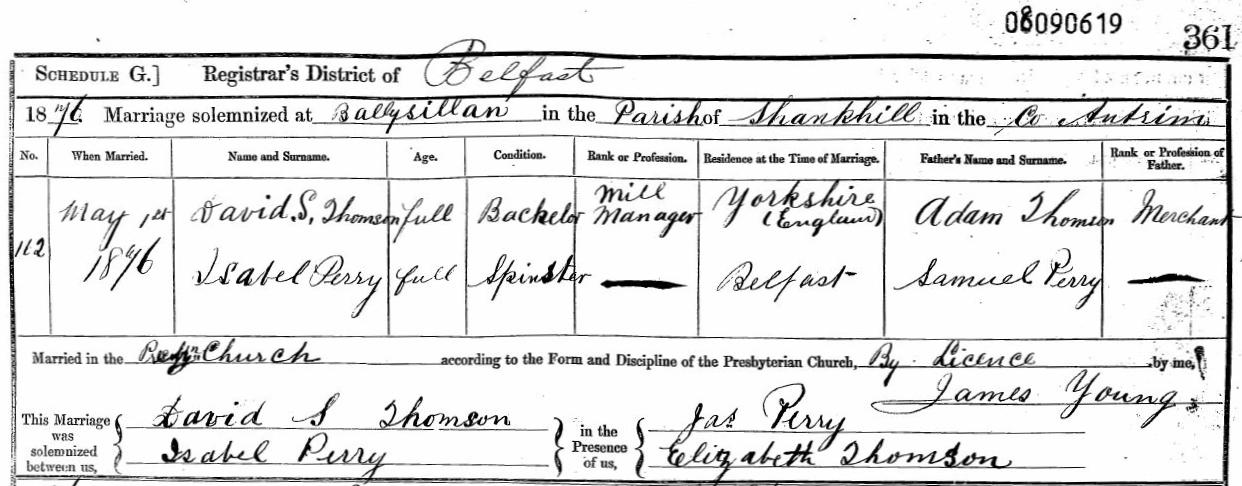 08090619
361
SCHEDULE G.] Registrar's District of Belfast
1876. Marriage solemnized at Ballysillan in the Parish of Shankhill in the Co Antrim
No. When Married. Name and Surname. Age. Condition. Rank or Profession. Residence at the Time of Marriage. Father's Name and Surname. Rank or Profession of Father.
112 May 1st 1876 David S. Thomson full Bachelor Mill Manager Yorkshire (England) Adam Thomson Merchant
Isabel Perry full Spinster Belfast Samuel Perry
Married in the Church according to the Form and Discipline of the Presbyterian Church, By Licence by me,
James Young
This Marriage was solemnized between us, David S Thomson in the Presence of us, Jas Perry
Isabel Perry Elizabeth Thomson